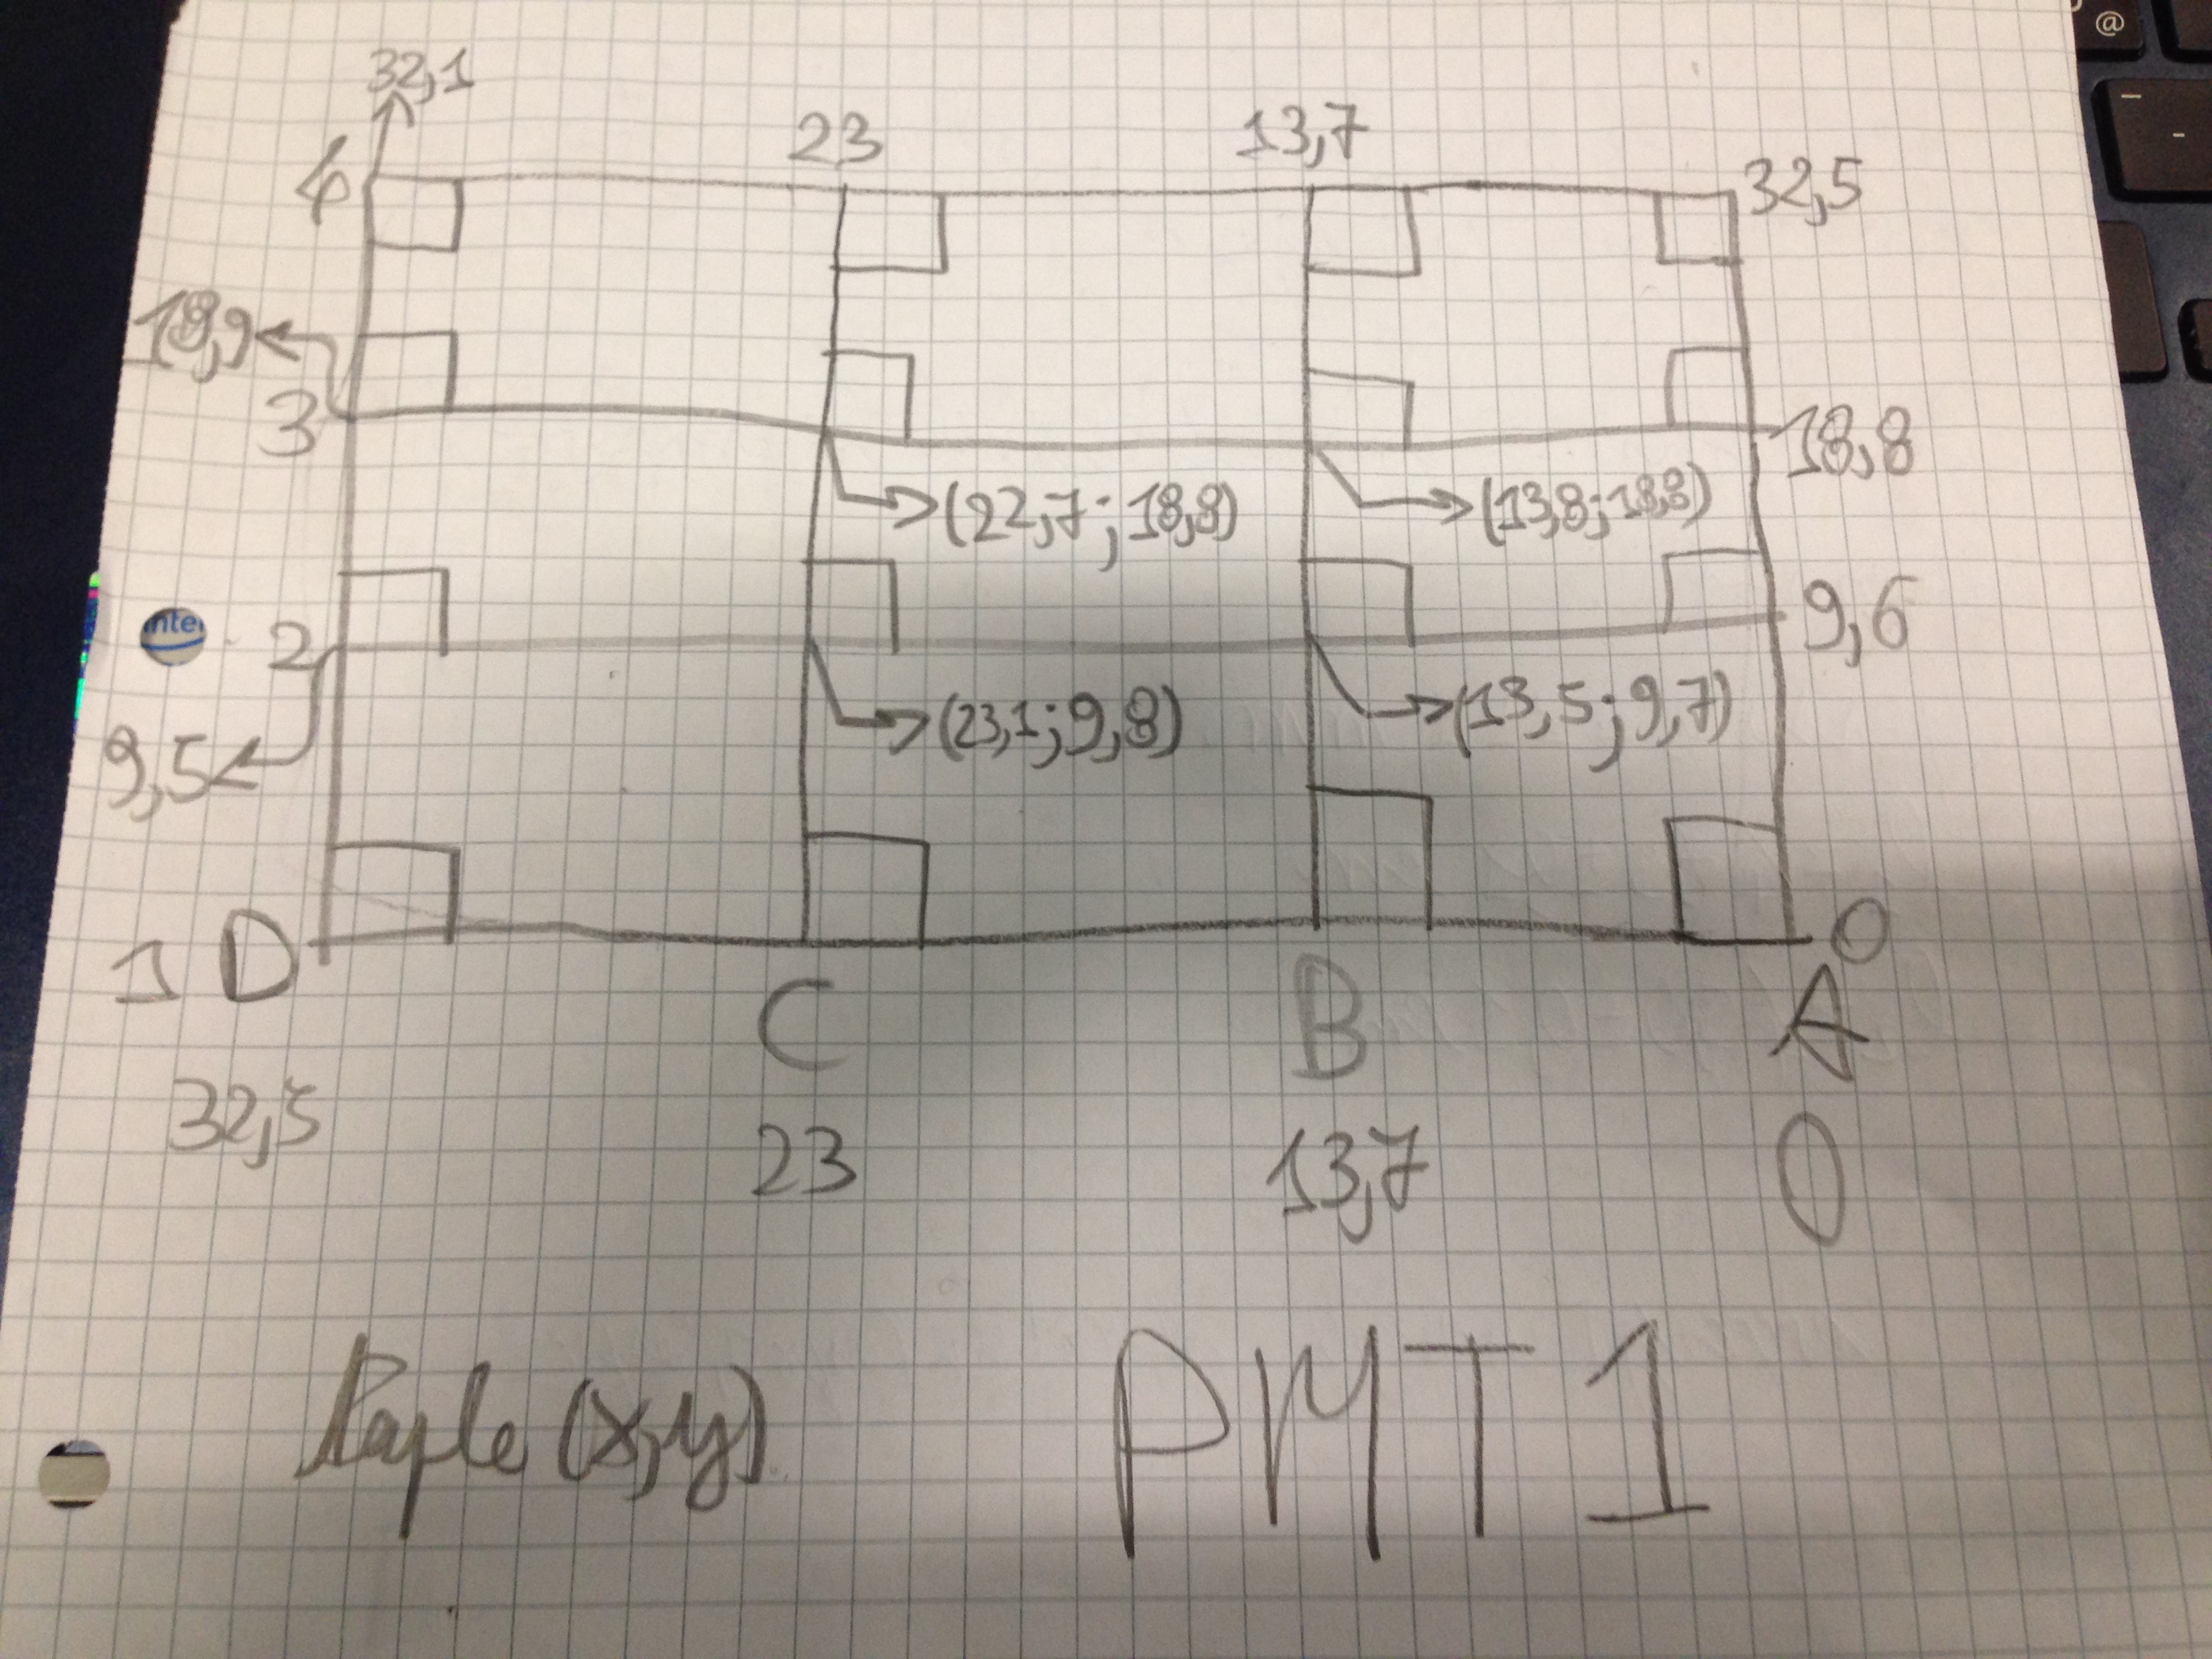 32,1
23
13,7
4
32,5
3
18,8
(22,7;18,8)
(13,8;18,8)
2
9,6
9,5
(23,1;9,8)
(13,5;9,7)
1 D
C
B
A
0
32,5
23
13,7
0
(x,y)
PMT 1
intel
@